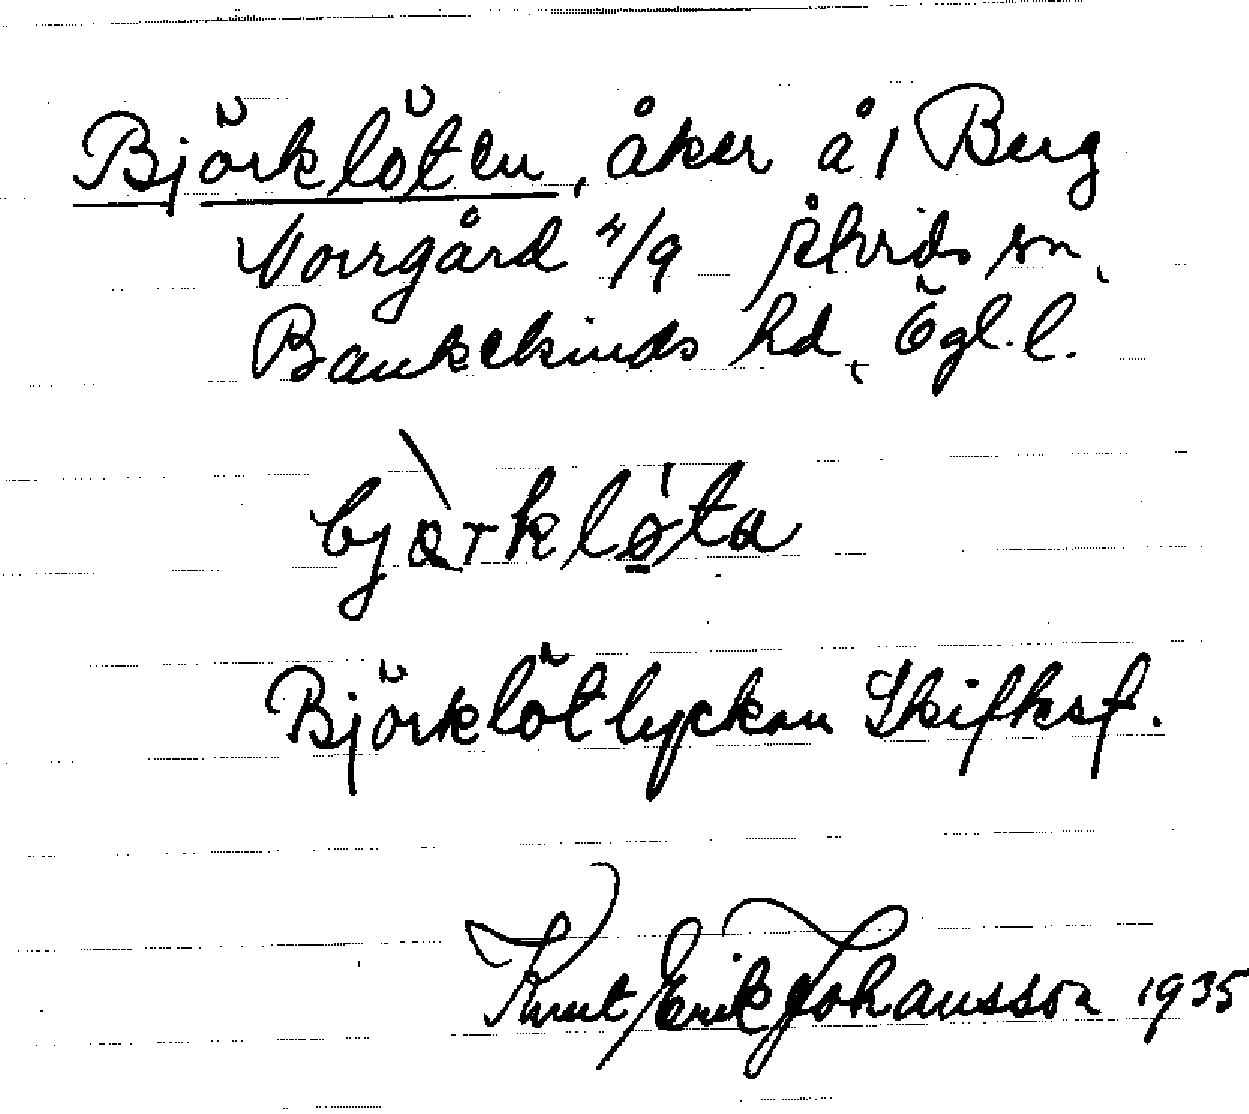 Björklöten, åker å 1 Berg
Norrgård 4/9 Åtvids sn,
Bankekinds hd, Ögl. l.
bjòrkløta
Björklötlyckan Skifksf.
Knut Erik Johansson 1935